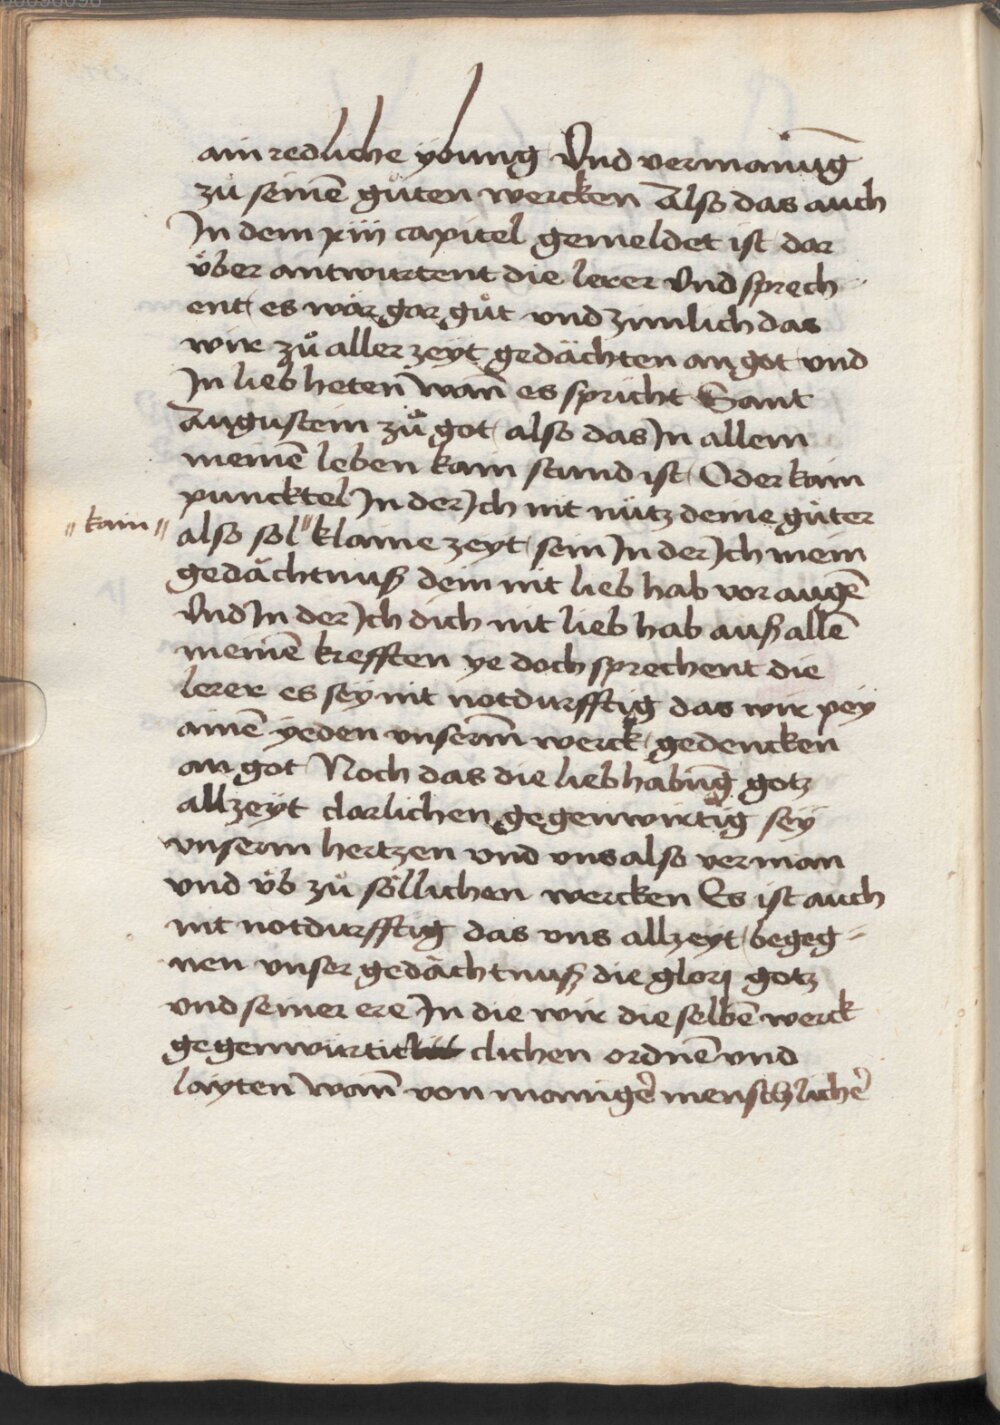 ain redliche ÿbung Vnd vermanu̅g
zů seine̅ gůten wercken Also das auch
In dem xiiij capitel gemeldet ist dar
v̊ber antwurtent die lerer Vnd sprech
ent es wär gar gůt vnd zimlich das
wir zů aller zeyt gedächten an got vnd
In lieb heten Wan̅ es spricht Sant
Augustein zů got also das In allem
meine̅ leben kain stund ist Oder kain
puncktel In der Ich nit nütz deine gůter
" kain " also sol " klaine zeyt sein In der Ich mein
gedächtnuß dein nit lieb hab vor auge̅
Vnd In der Ich dich nit lieb hab auß alle̅
meine̅ krefften ye doch sprechent die
lerer es sey nit notdurfftig das wir pey
aine̅ yeden vnserm̅ werck gedencken
an got Noch das die liebhabu̅g gotz
allzeyt clarlichen gegenwirtig sey
vnserm hertzen vnd vns also verman
vnd v̊b zů söllichen wercken Es ist auch
nit notdurfftig das vns allzeyt begeg-
nen vnser gedächtnuß die glorj gotz
vnd seiner ere In die wir die selbe̅ werck
gegenwurtit clichen ordne̅ vnd
layten Wan̅ von manige̛ menschliche̛